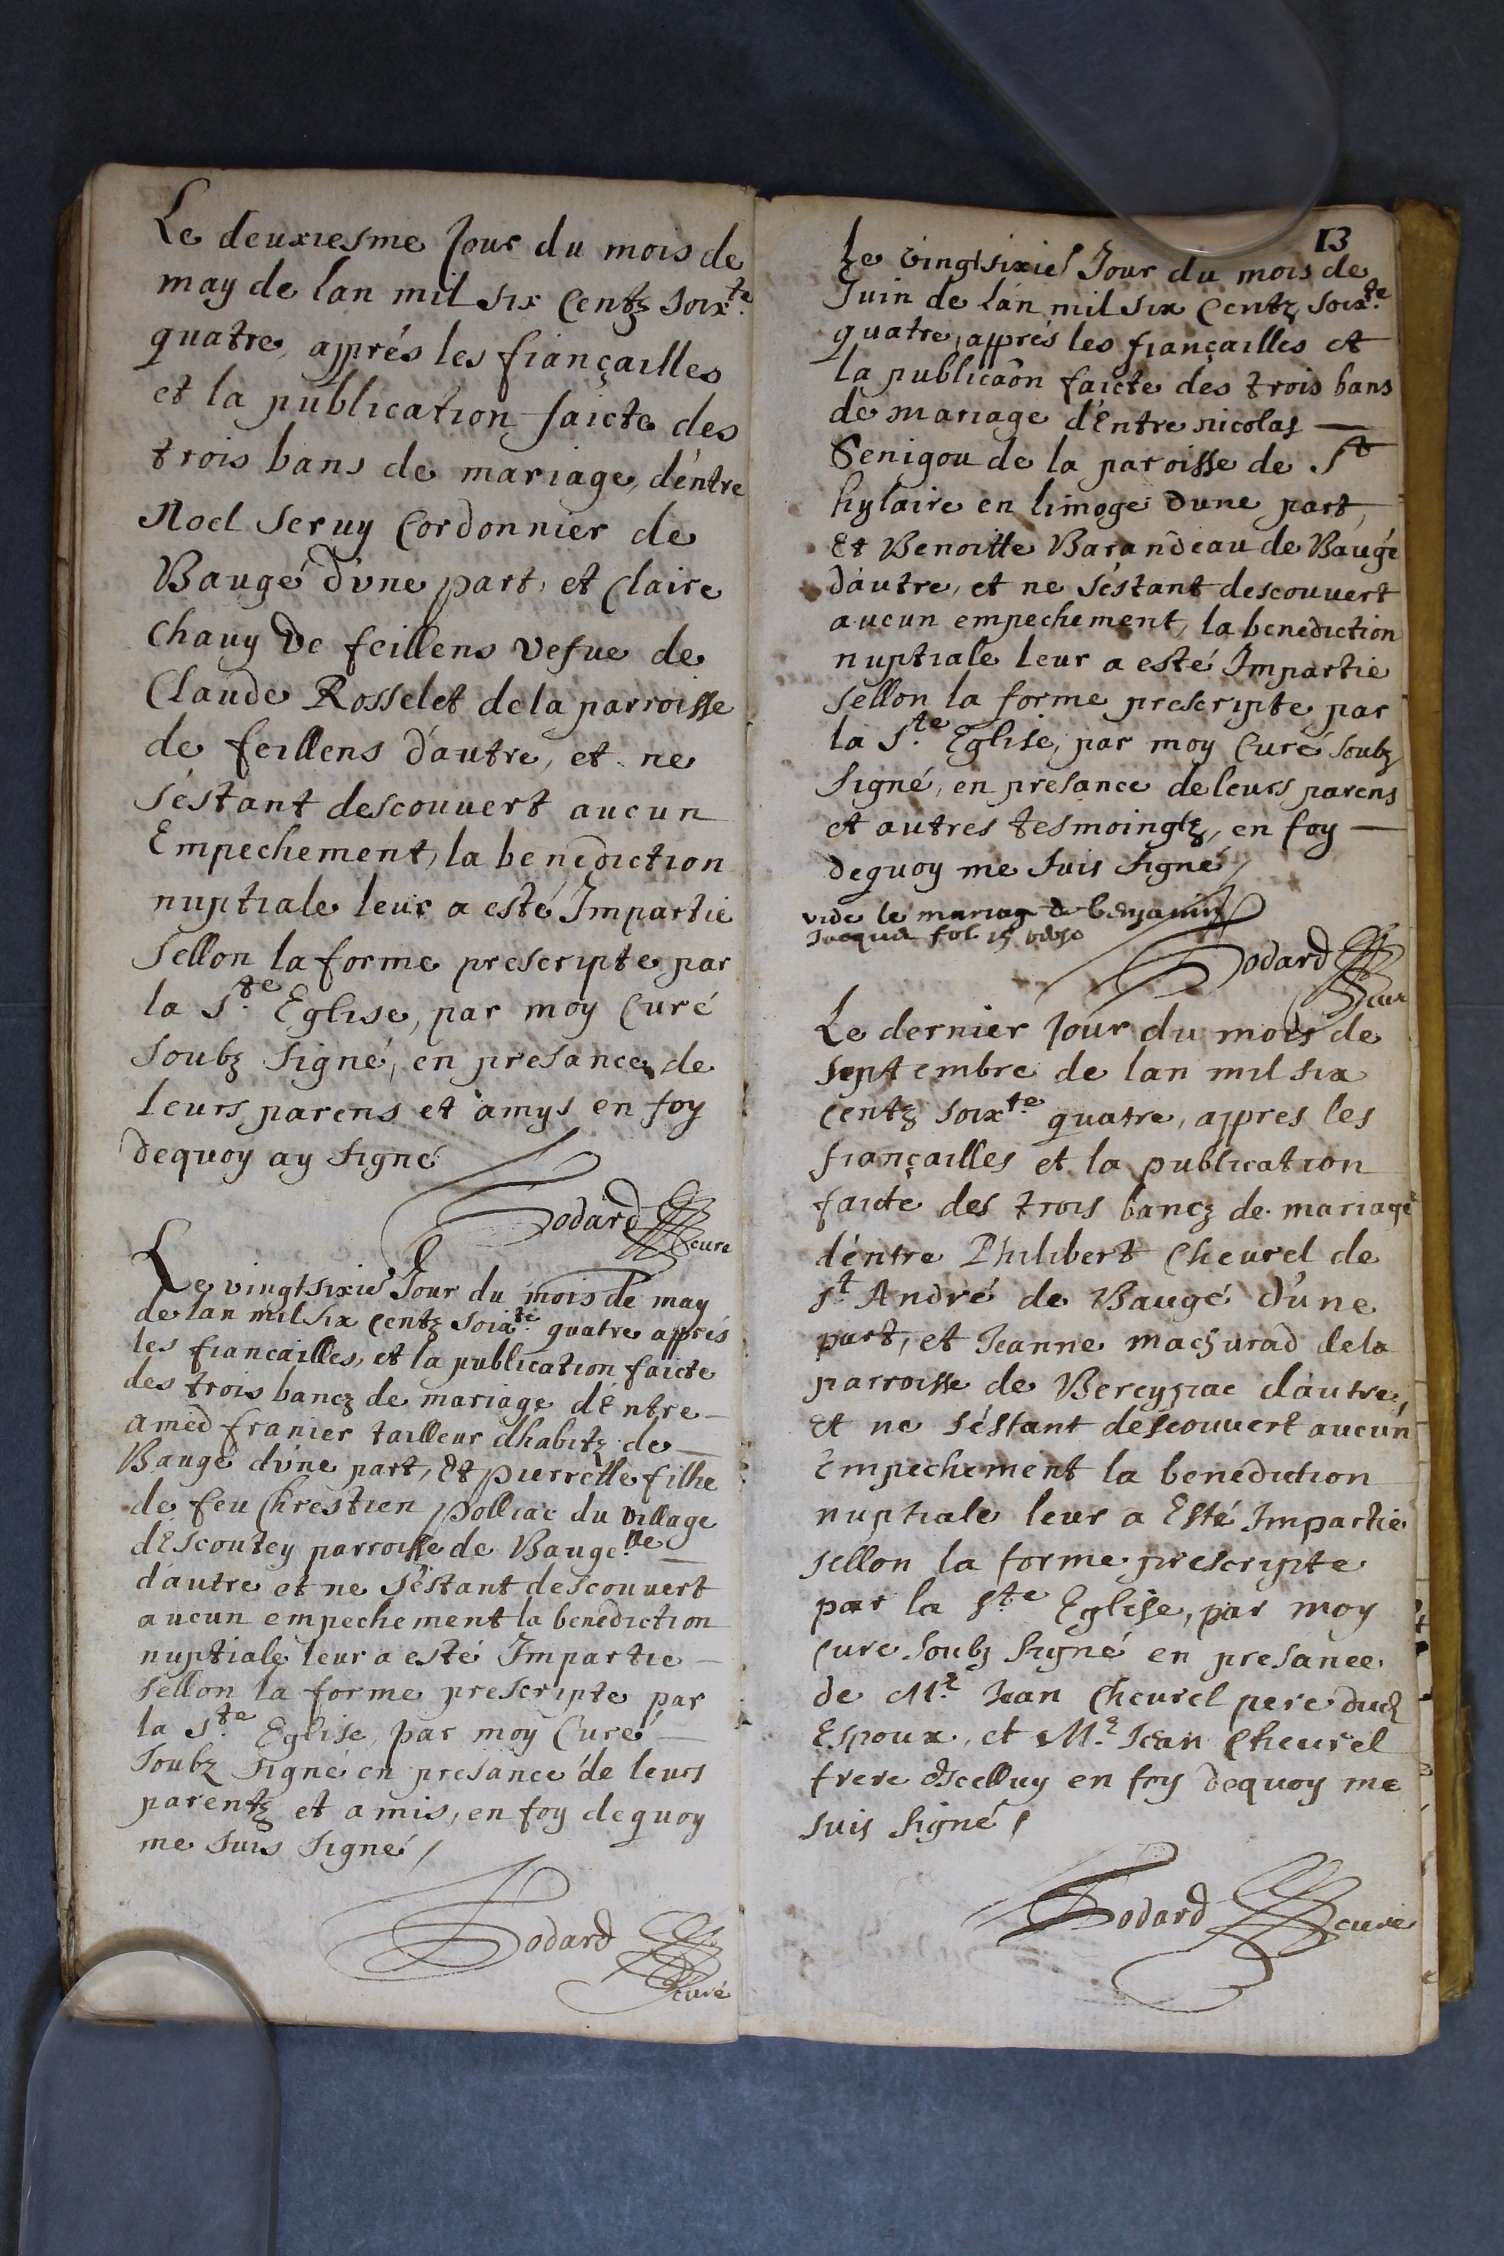 Le deuxiesme Jour du mois de
may de lan mil six Centz soix.te
quatre, apprés les fiançailles
et la publication faicte des
trois bans de mariage, déntre
Noel Seruy Cordonnier de
Baugé d'vne part, et Claire
Chavy De feillens vefue de
Claude Rosselet de la parroisse
de feillens d'autre, et ne
s'éstant descouvert aucun
Empechement, la benediction
nuptiale leur a esté Impartie
sellon la forme prescripte par
la S.te Eglise, par moy Curé
soubz signé, en presance de
leurs parens et amys en foy
dequoy ay signé
Godard curé
Le vingtsixie Jour du mois de may
de lan mil six Centz soix.te quatre apprés
les fiancailles, et la publication faicte
des trois bancz de mariage dEntre
amed franier tailleur dhabitz de
Baugé d'vne part, Et pierrette fillie
de feu Chrestien polliac du village
dEscoutey parroisse de Bauge.lle
d'autre et ne s'éstant descouvert
aucun empechement la benediction
nuptiale leur a esté Impartie
sellon la forme prescripte par
la S.te Eglise, par moy Curé
soubz signé en presance de leurs
parentz et amis, en foy dequoy
me suis signé /
Godard curé
13
Le vingtsixie Jour du mois de
Juin de lan mil six Centz soix.te
quatre, apprés les fiançailles et
la publicaõn faicte des trois bans
de mariage d'Entre nicolas
Senigou de la paroisse de St
hylaire en limoge dune part,
Et Benoitte Barandeau de Baugé
d'autre, et ne s'éstant descouvert
aucun empechement, la benediction
nuptiale leur a esté Impartie
sellon la forme prescripte par
la S.te Eglise, par moy Curé soubz
signé, en presance de leurs parens
et autres tesmoingtz, en foy
dequoy me suis signé /
vide le mariage de benjamin
Jacquet fol 15 verso
Godard cur
Le dernier Jour du mois de
septembre de lan mil six
Centz soix.te quatre, appres les
fiançailles et la publication
faicte des trois bancz de mariage
d'éntre Philibert Cheurel de
St André de Baugé d'une
part, et Jeanne machurad de la
parroisse de Bereyziac dautre,
et ne s'éstant descouvert aucun
empechement la benediction
nuptiale leur a Esté Impartie
sellon la forme prescripte
par la S.te Eglise, par moy
cure soubz signé en presance
de M.e Jean Cheurel pere dud
Espoux, et M.e Jean Cheurel
frere d'Icelluy en foy dequoy me
suis signé /
Godard curé